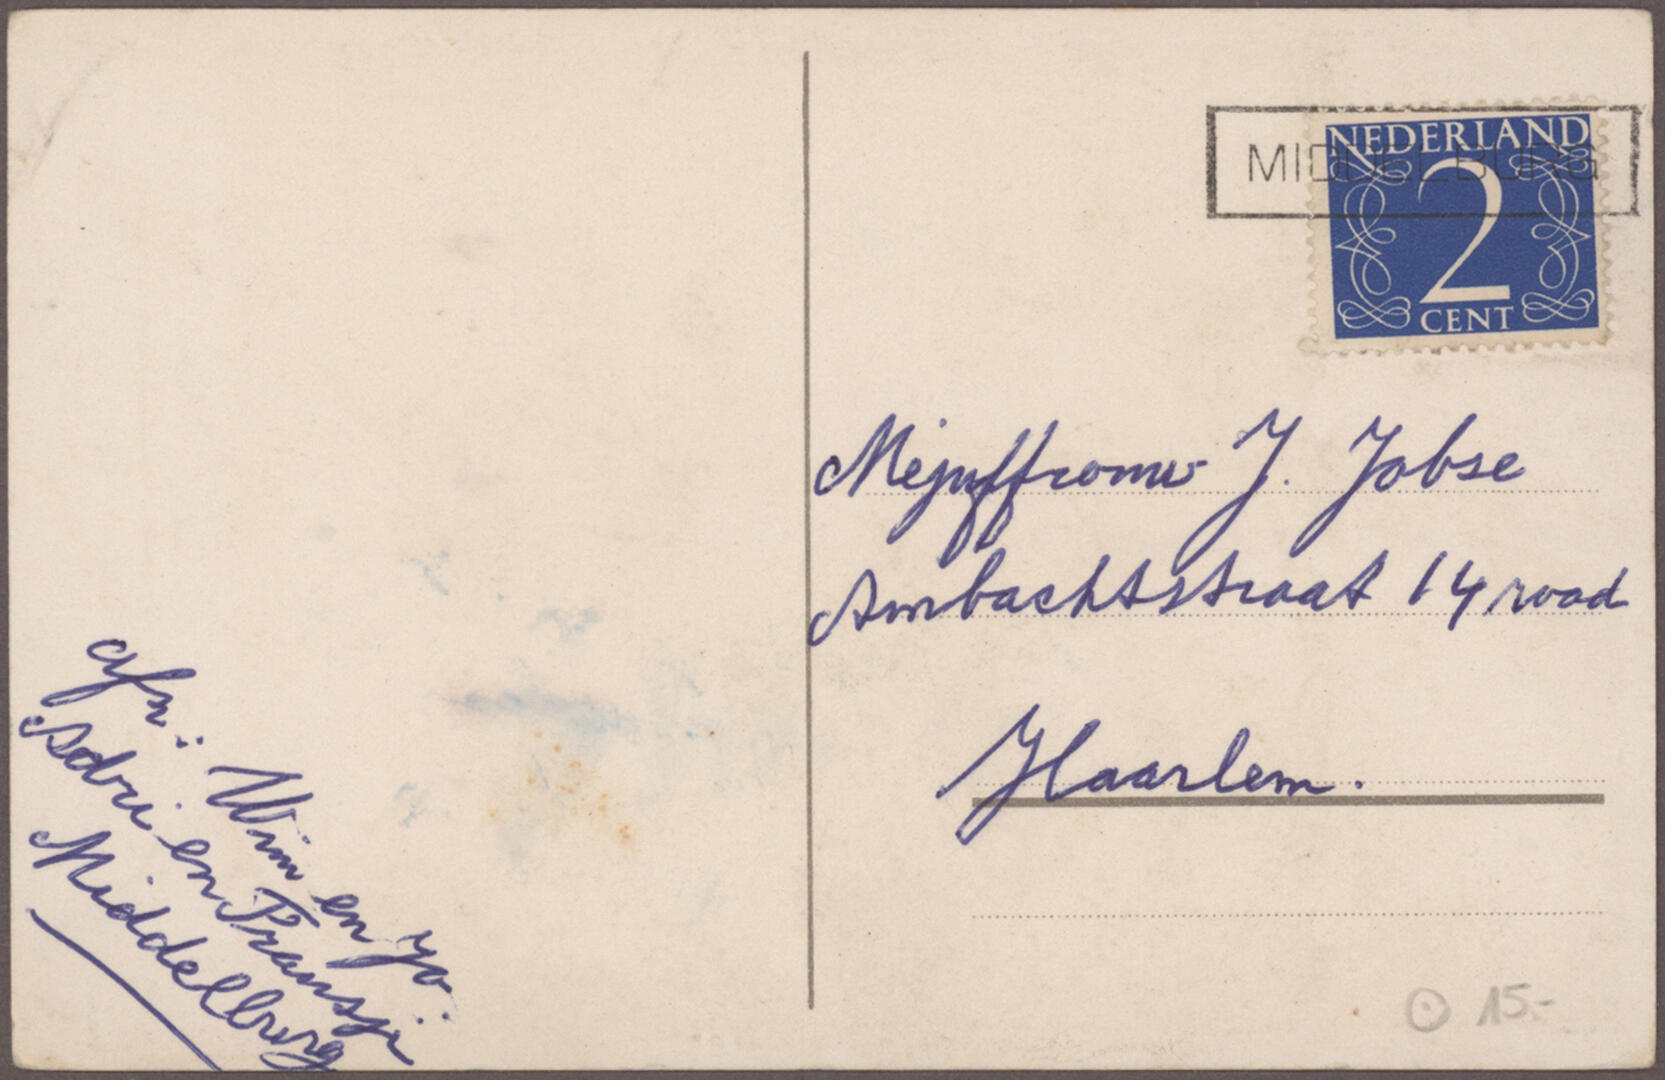 MIDDELBURG
NEDERLAND
2
CENT
Mejuffrouw J. Jobse
Ambachtstraat 14 rood
Haarlem.
afz: Wim en Jo.
Adri en Fransje
Middelburg
15.-